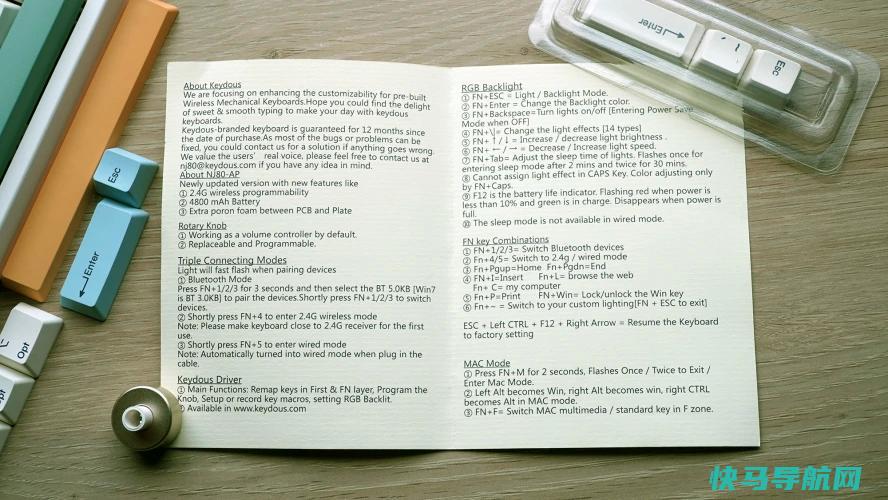 About Keydous
We are focusing on enhancing the customizability for pre-built
Wireless Mechanical Keyboards.Hope you could find the delight
of sweet & smooth typing to make your day with keydous
keyboards.
Keydous-branded keyboard is guaranteed for 12 months since
the date of purchase.As most of the bugs or problems can be
fixed, you could contact us for a solution if anything goes wrong.
We value the users' real voice, please feel free to contact us at
nj80@keydous.com if you have any idea in mind.
About NJ80-AP
Newly updated version with new features like
① 2.4G wireless programmability
② 4800 mAh Battery
③ Extra poron foam between PCB and Plate
Rotary Knob
① Working as a volume controller by default.
② Replaceable and Programmable.
Triple Connecting Modes
Light will fast flash when pairing devices
① Bluetooth Mode
Press FN+1/2/3 for 3 seconds and then select the BT 5.0KB [Win7
is BT 3.0KB] to pair the devices.Shortly press FN+1/2/3 to switch
devices.
② Shortly press FN+4 to enter 2.4G wireless mode
Note: Please make keyboard close to 2.4G receiver for the first
use.
③ Shortly press FN+5 to enter wired mode
Note: Automatically turned into wired mode when plug in the
cable.
Keydous Driver
① Main Functions: Remap keys in First & FN layer, Program the
Knob, Setup or record key macros, setting RGB Backlit.
② Available in www.keydous.com
RGB Backlight
① FN+ESC = Light / Backlight Mode.
② FN+Enter = Change the Backlight color.
③ FN+Backspace=Turn lights on/off [Entering Power Save
Mode when OFF]
④ FN+\|= Change the light effects [14 types]
⑤ FN+ ↑ / ↓ = Increase / decrease light brightness .
⑥ FN+ ← / → = Decrease / Increase light speed.
⑦ FN+Tab= Adjust the sleep time of lights. Flashes once for
entering sleep mode after 2 mins and twice for 30 mins.
⑧ Cannot assign light effect in CAPS Key. Color adjusting only
by FN+Caps.
⑨ F12 is the battery life indicator. Flashing red when power is
less than 10% and green is in charge. Disappears when power is
full.
⑩ The sleep mode is not available in wired mode.
FN key Combinations
① FN+1/2/3= Switch Bluetooth devices
② Fn+4/5= Switch to 2.4g / wired mode
③ Fn+Pgup=Home Fn+Pgdn=End
④ FN+I=Insert Fn+L= browse the web
Fn+ C= my computer
⑤ Fn+P=Print FN+Win= Lock/unlock the Win key
⑥ Fn+~ = Switch to your custom lighting[FN + ESC to exit]
ESC + Left CTRL + F12 + Right Arrow = Resume the Keyboard
to factory setting
MAC Mode
① Press FN+M for 2 seconds, Flashes Once / Twice to Exit /
Enter Mac Mode.
② Left Alt becomes Win, right Alt becomes win, right CTRL
becomes Alt in MAC mode.
③ FN+F= Switch MAC multimedia / standard key in F zone.
Enter
Esc
Esc
Enter
Opt
快马导航网